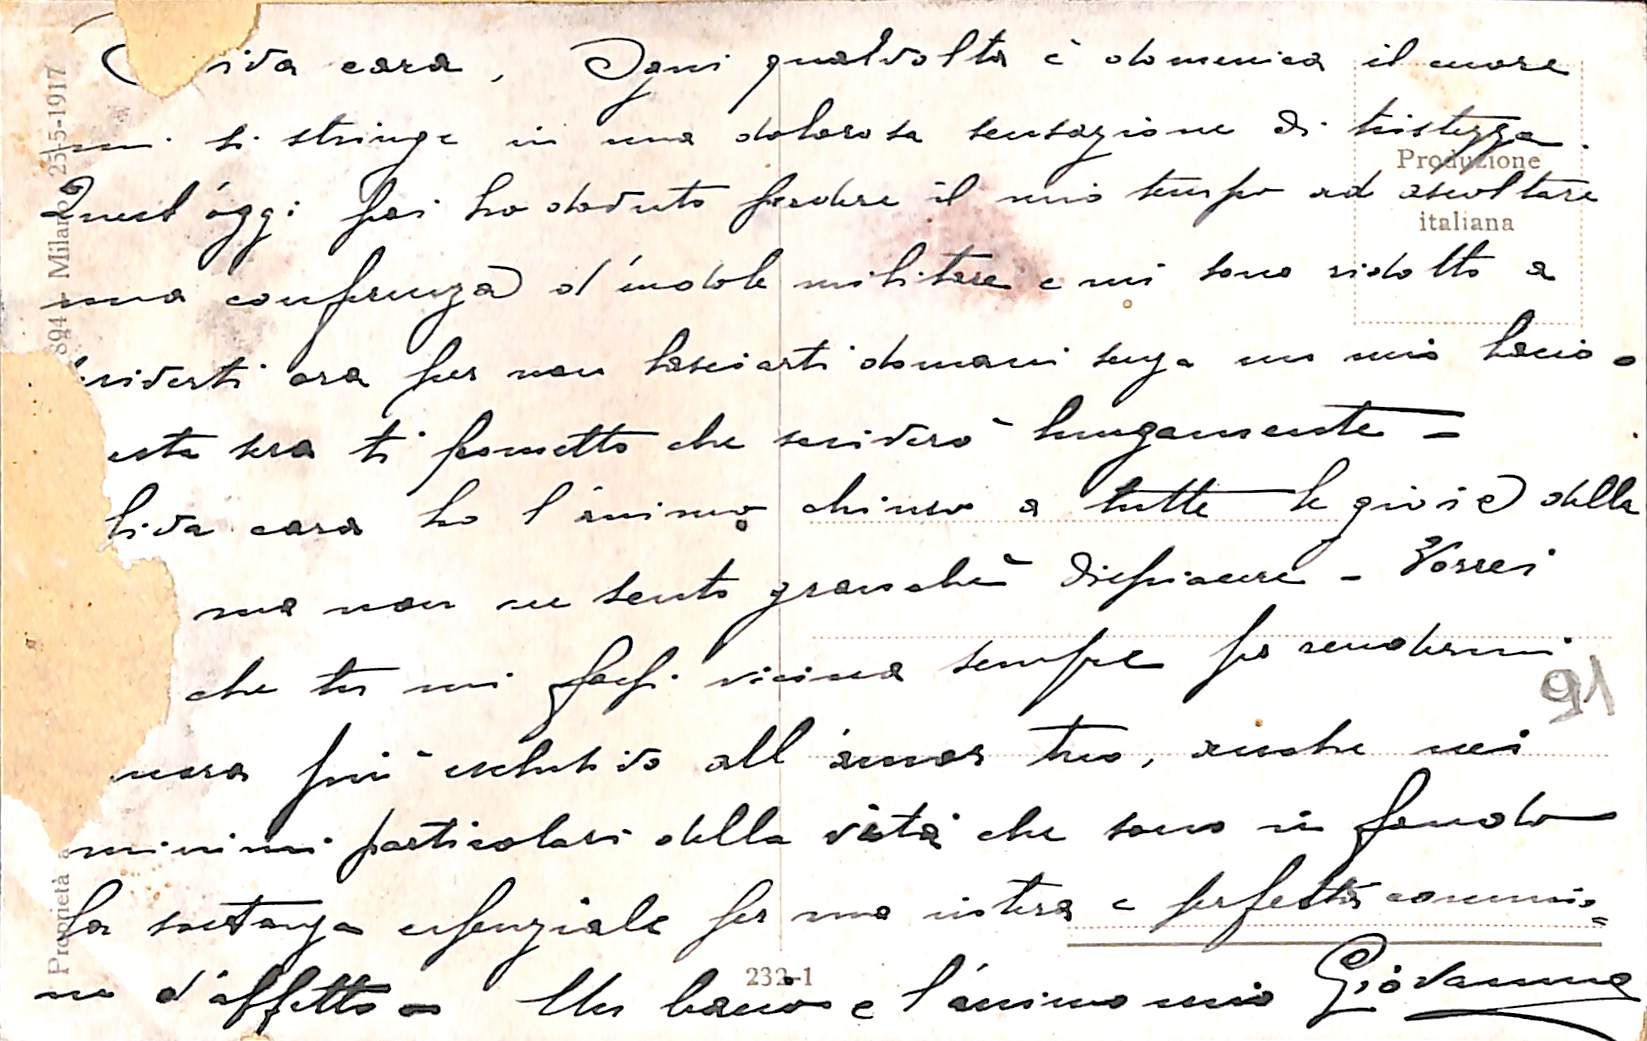 Oliva cara, Ogni qualvolta è domenica il cuore
mi si stringe in una dolorosa sensazione di tristezza.
Quest'oggi poi ho dovuto perdere il mio tempo ad ascoltare
una conferenza d'indole militare e mi sono ridotto a
scriverti ora per non lasciarti domani senza un mio bacio.
esta sera ti prometto che scriverò lungamente -
liva cara ho l'animo chiuso a tutte le gioie della
ma non ne sento granchè dispiacere - Vorrei
che tu mi fossi vicina sempre per rendermi
ancora più esclusivo all'amor tuo, anche nei
minimi particolari della vita che sono in fondo
la sostanza essenziale per una intera e perfetta comunio=
ne d'affetto - Un bacio e l'animo mio Giovanni
Produzione
italiana
91
232-1
Proprietà a
894 - Milano 25-5-1917